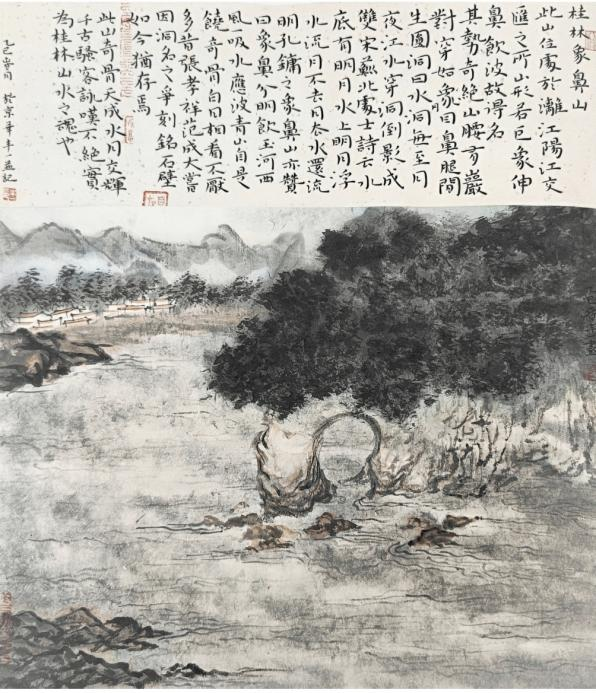 桂林象鼻山
此山位處於灕江陽江交
匯之所山形若巨象伸
鼻飲波故得名
其勢奇絕山腰有巖
對穿如象目鼻腿間
生圓洞曰水洞每至月
夜江水穿洞倒影成
雙宋薊北處士詩云水
底有明月水上明月浮
水流月不去月去水還流
明孔鏞之象鼻山亦贊
曰象鼻分明飲玉河西
風一吸水應波青山自是
饒奇骨白日相看不厭
多昔張孝祥范成大嘗
因洞名之爭刻銘石壁
如今猶存焉
此山奇骨天成水月交輝
千古騷客詠嘆不絕實
為桂林山水之魂也
月於京華 記